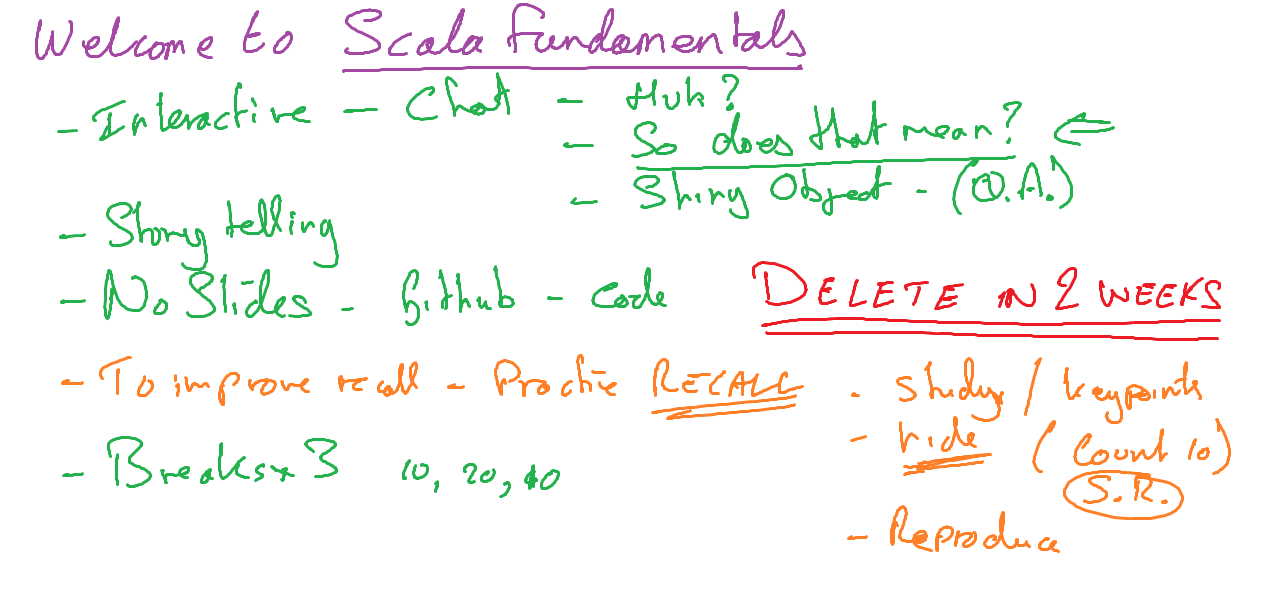 Welcome to Scala Fundamentals
- Interactive - Chat - Huh?
- So does that mean? ⇐
- Shiny Object - (Q.A.)
- Story telling
- No Slides - Github - code
DELETE IN 2 WEEKS
- To improve recall - Practice RECALL
- study / keypoints
- hide (Count 10)
S.R.
- Reproduce
- Breaks x 3 10, 20, 10